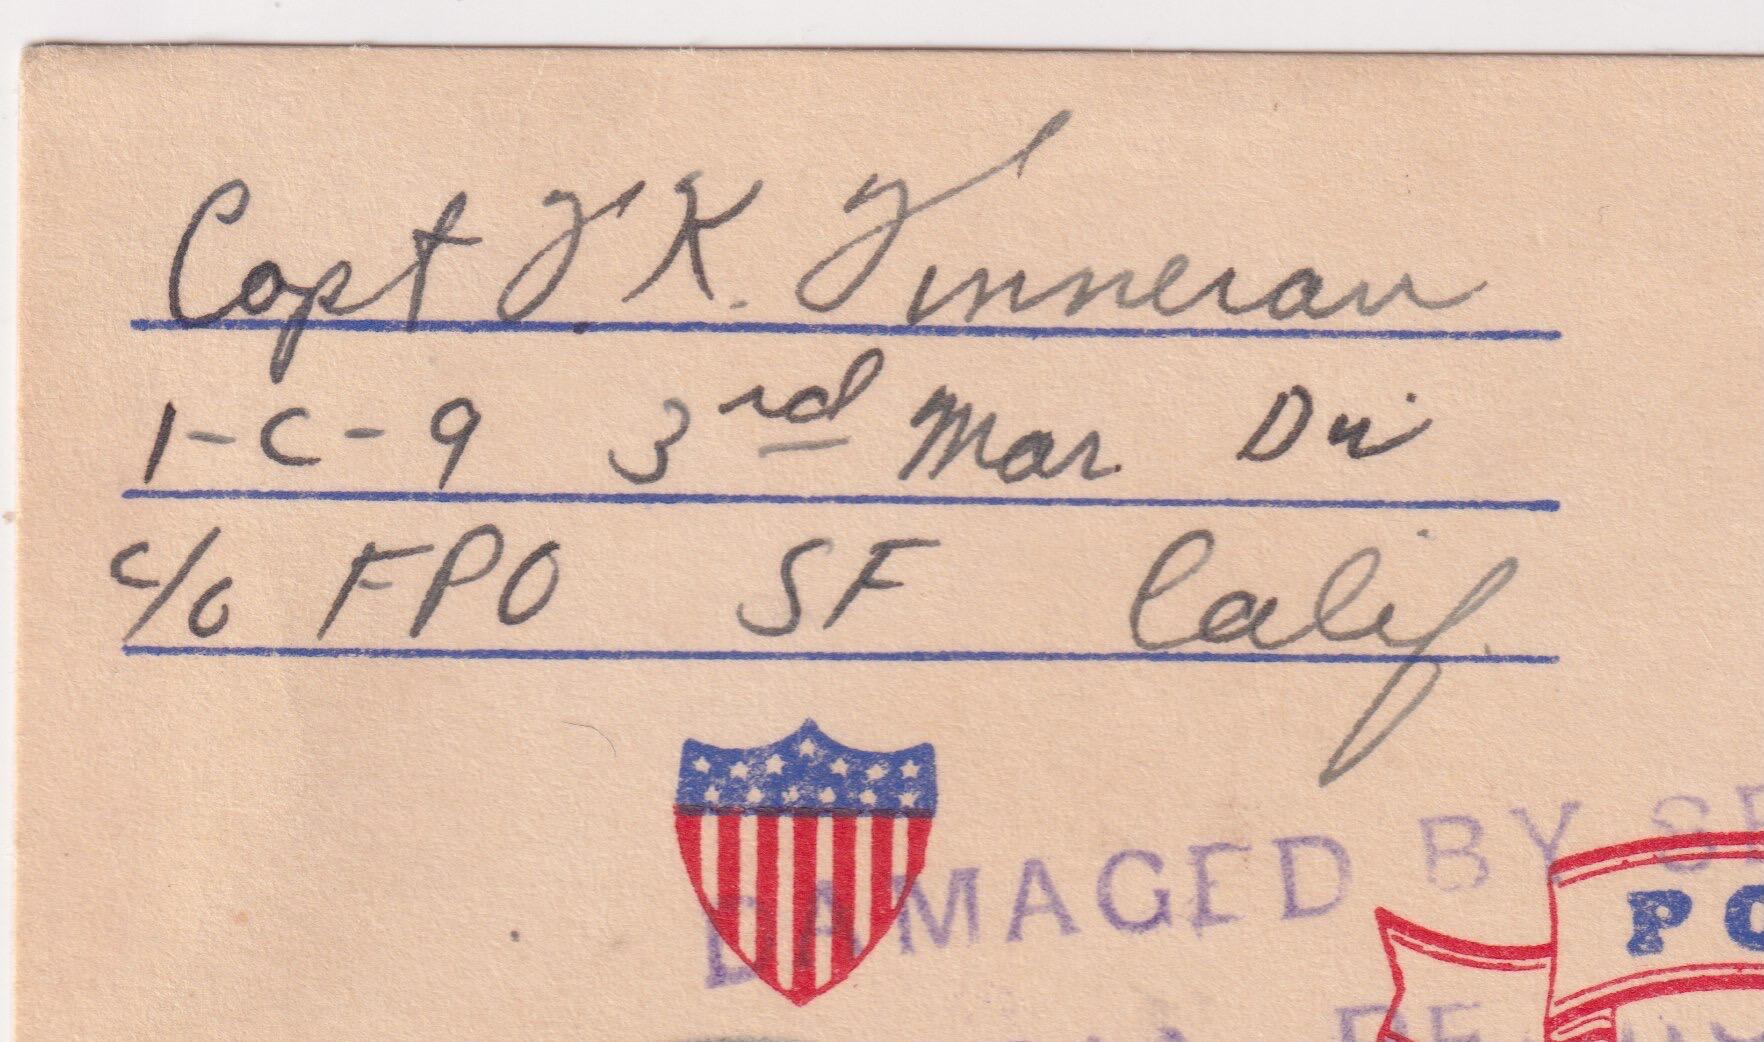 Capt K.
1-C-9 3rd Mar. Div
c/o FPO SF Calif.
DAMAGED BY
PO